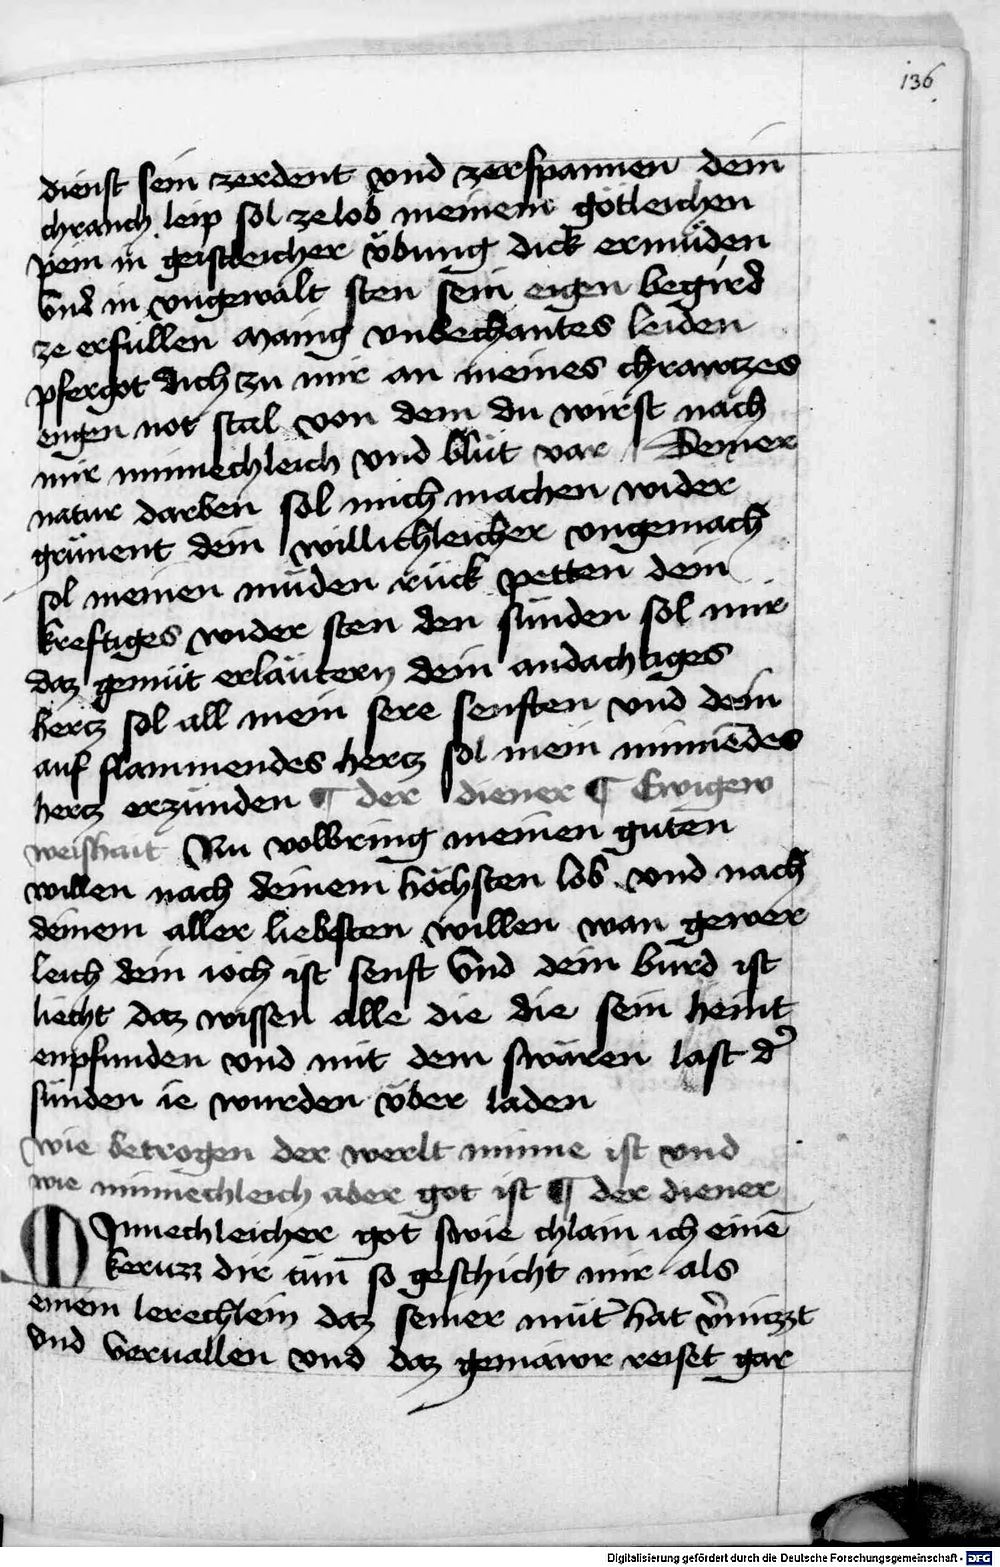 136
dienst sein zerdent vnd zerspannen dein
chranch leip sol zelob meinem götleichen
pein in geistleicher übung dick ermüden
vnd in vngewalt sten sein eigen begird
ze erfüllen Manig vnbechantes leiden
pfergot dich zu mir an meines chrawtzes
engen not stal von dem du wirst nach
mir minnechleich vnd blüt var Deiner
natur darben sol mich machen wider
grünent dein willichleicher vngemach
sol meinen müden rück petten dein
kreftiges wider sten den sünden sol mir
daz gemüt erläutern dein andachtiges
hertz sol all mein sere senften vnd dein
auf flammendes hertz sol mein minnēdes
hertz erzünden ¶ der diener ¶ Ewigew
weishait Nu volbring meinen guten
willen nach deinem höchsten lob vnd nach
deinem aller liebsten willen wan gewer
leich dein ioch ist senft vnd dein burd ist
liecht daz wissen alle die die sein heint
enpfunden vnd mit dem swären last d'
sünden ie wurden über laden
wie betrogen der werlt minne ist vnd
wie minnechleich aber got ist ¶ der diener
MInnechleicher got swie chlain ich einē
keruzz dir tün so geschicht mir als
einem lerechlein daz seiner müt' hat v'mizzt
vnd veruallen vnd daz gemawr reiset gar
Digitalisierung gefördert durch die Deutsche Forschungsgemeinschaft - DFG